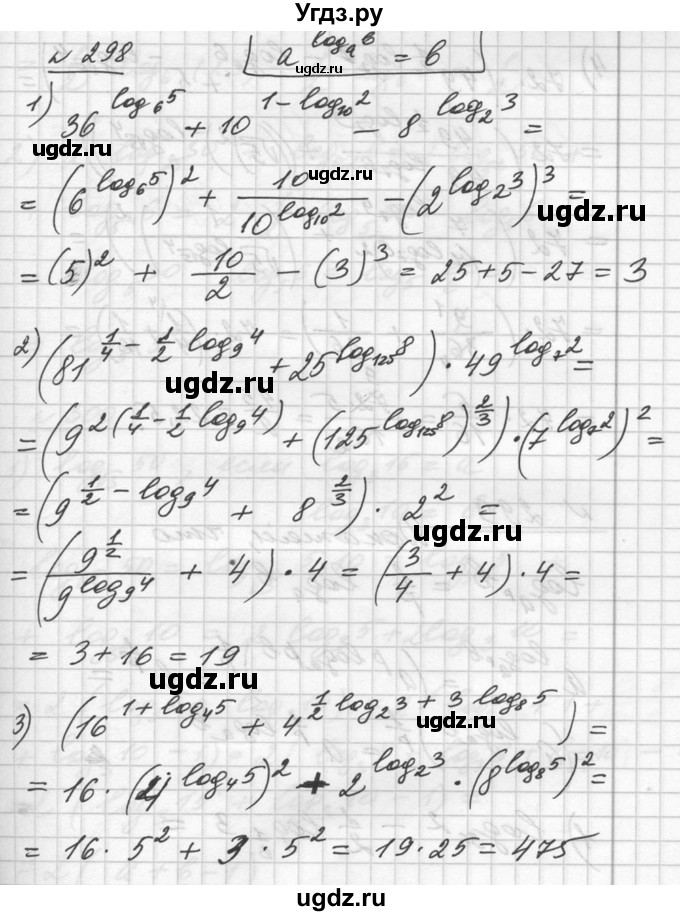 Угдз.ру
№ 298 a^{log_a b} = b
1) 36^{log_6 5} + 10^{1 - log_{10} 2} - 8^{log_2 3} =
= (6^{log_6 5})^2 + 10/10^{log_{10} 2} - (2^{log_2 3})^3 =
= (5)^2 + 10/2 - (3)^3 = 25 + 5 - 27 = 3
2) (81^{1/4 - 1/2 log_9 4} + 25^{log_{125} 8}) · 49^{log_7 2} =
= (9^{2(1/4 - 1/2 log_9 4)} + (125^{log_{125} 8})^{2/3}) · (7^{log_7 2})^2 =
= (9^{1/2 - log_9 4} + 8^{2/3}) · 2^2 =
= (9^{1/2}/9^{log_9 4} + 4) · 4 = (3/4 + 4) · 4 =
= 3 + 16 = 19
3) (16^{1 + log_4 5} + 4^{1/2 log_2 3 + 3 log_8 5}) =
= 16 · (4^{log_4 5})^2 + 2^{log_2 3} · (8^{log_8 5})^2 =
= 16 · 5^2 + 3 · 5^2 = 19 · 25 = 475
ugdz.ru
ugdz.ru
ugdz.ru
ugdz.ru
ugdz.ru
ugdz.ru
ugdz.ru
ugdz.ru
ugdz.ru
ugdz.ru
ugdz.ru
ugdz.ru
ugdz.ru